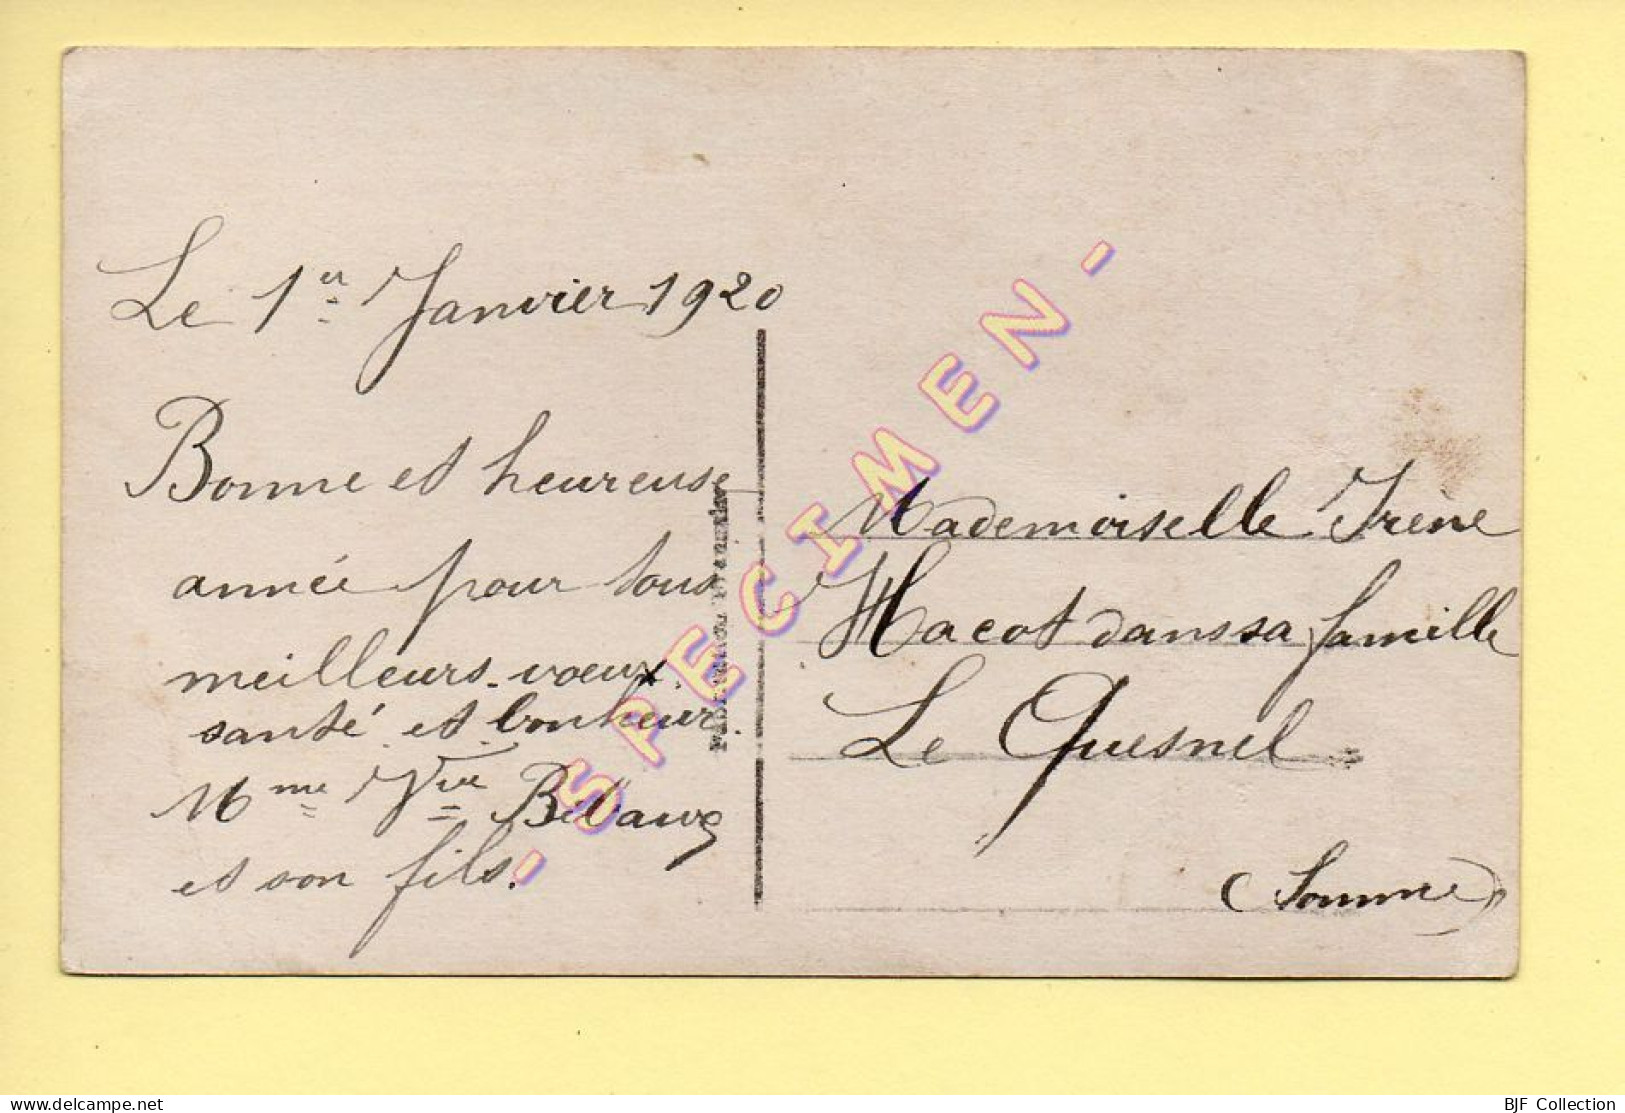 Le 1er Janvier 1920
Bonne et heureuse
année pour tous
meilleurs voeux
santé et bonheur
Mme Vve
et son fils.
Mademoiselle Irène
Macot dans sa famille
Le Quesnel
(Somme)
- SPECIMEN -
delcampe.net
BJF Collection